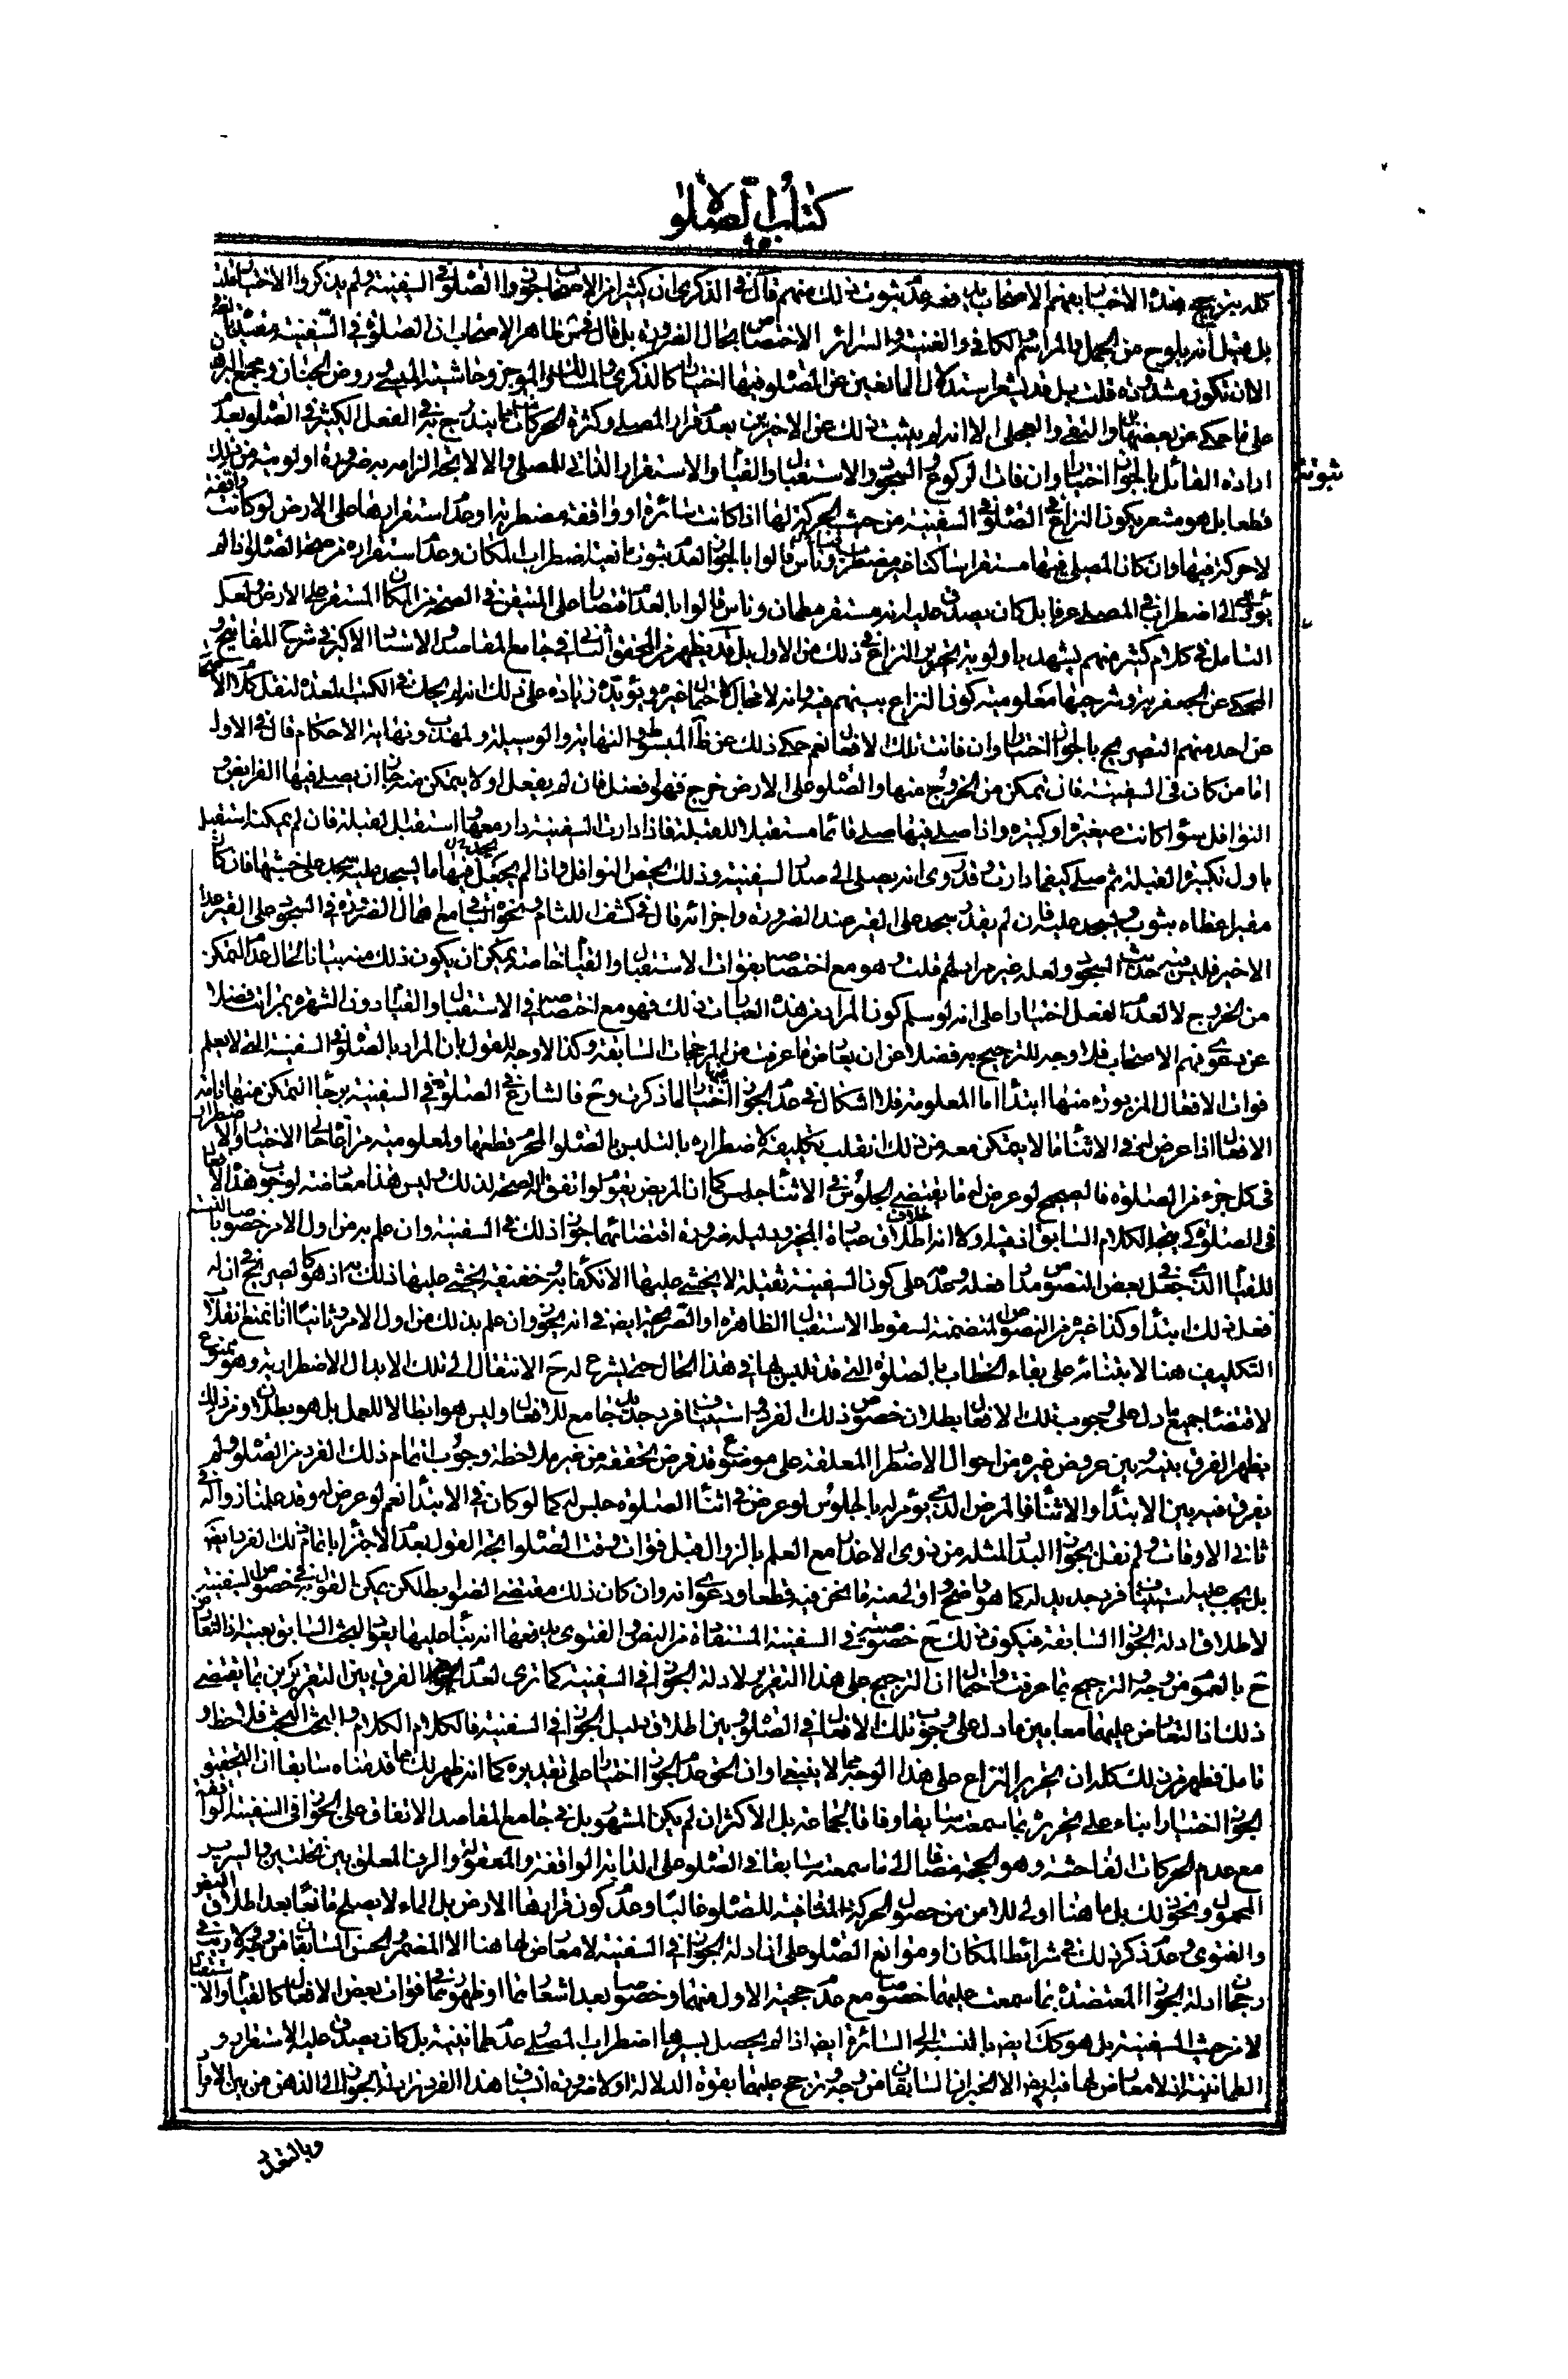 كتاب الصلوة
كله بترجيح هذه الاخبار بفهم الاصحاب يدفعه عدم ثبوت ذلك منهم قال في الذكرى ان كثيرا من الاصحاب جوزوا الصلوة في السفينة ولم يذكروا الاختيار قلت
بل قيل انه يلوح من الجمل والمراسم والكافي والغنية والسرائر الاختصاص بحال الضرورة بل قال ظاهر الاصحاب ان الصلوة في السفينة مقيدة
الا ان تكون مشدودة قلت بل قد يشعر استدلال المانعين عن الصلوة فيها اختيارا كالذكرى والمسالك والموجز وحاشية الميسي روض الجنان ومجمع البرهان
على ما حكي عن بعضها الا انه لم يثبت ذلك عن الاخيرين بعدم قرار المصلي وكثرة الحركات مما يندرج في الفعل الكثير في الصلوة بعدم
ارادة القائل بالجواز اختيارا وان فات الركوع والسجود والاستقبال والقيام والاستقرار الذاتي للمصلي والا لاتجه الزامه به ضرورة اولويته من ذلك
قطعا بل هو مشعر بكون النزاع في الصلوة في السفينة من حيث الحركة لها اذا كانت سائرة او واقفة مضطربة او عدم استقرارها على الارض لو كانت واقفة
لا حركة فيها وان كان المصلي فيها مستقرا ساكنا غير مضطرب فناس قالوا بالجواز لعدم ثبوت مانعية اضطراب المكان وعدم استقراره من صحة الصلوة ما لم
يؤد الى اضطراب في المصلي عرفا بل كان يصدق عليه انه مستقر مطمئن وناس قالوا بالعدم اقتصارا على المتيقن في الصحة من المكان المستقر على الارض ولعل
التامل في كلام كثير منهم يشهد باولوية تحرير النزاع في ذلك من الاول بل قد يظهر من المحقق الثاني في جامع المقاصد والاستاد الاكبر في شرح المفاتيح و
المحكي عن الجعفرية وشرحيها معلومية كون النزاع بينهم فيه وانه لا مجال لاحتمال غيره ويؤيده زيادة على ذلك انه لم يحك في الكتب المعدة لنقل كلام الاصحاب
عن احد منهم التصريح بالجواز اختيارا وان فاتت تلك الافعال نعم حكي ذلك عن ظاهر المبسوط والنهاية والوسيلة والمهذب ونهاية الاحكام قال في الاول
اما من كان في السفينة فان تمكن من الخروج منها والصلوة على الارض خرج فهو افضل فان لم يفعل او لا يتمكن منه جاز ان يصلي فيها الفرائض و
النوافل سواء كانت صغيرة او كبيرة واذا صلى فيها صلى قائما مستقبلا للقبلة فاذا دارت السفينة دار معها واستقبل القبلة فان لم يمكنه استقبل
باول تكبيرة القبلة ثم صلى كيفما دارت وقد روى انه يصلي الى صدر السفينة وذلك يخص النوافل واذا لم يجد فيها ما يسجد عليه سجد على خشبها فان كان
مقيرا غطاه بثوب ويسجد عليه فان لم يقدر سجد على القير عند الضرورة واجزائه قال في كشف اللثام ونحوه الباقي مع اهمال الضرورة في السجود على القير عدا
الاخير فليس فيه حديث السجود ولعله غير مراد لهم قلت وهو مع اختصاصه بفوات الاستقبال والقيام خاصة يمكن ان يكون ذلك منه بيانا لحال عدم التمكن
من الخروج لا لعدم الفعل اختيارا على انه لو سلم كون المراد من هذه العبارات ذلك فهو مع اختصاصه في الاستقبال والقيام دون الشهرة بمراتب فضلا
عن دعوى فهم الاصحاب فلا وجه للترجيح به فضلا عن ان يعارض ما عرفت من المرجحات السابقة وكذا لا وجه للقول بان المراد بالصلوة في السفينة التي لا يعلم
فوات الافعال المزبورة منها ابتداء اما المعلومة فلا اشكال في عدم الجواز فيها اختيارا لما ذكرت وح فالشارع في الصلوة في السفينة برجاء التمكن منها تامة
الافعال اذا عرض له في الاثناء ما لا يتمكن معه من ذلك انقلب تكليفه لاضطراره بالتلبس بالصلوة المحرم قطعها ولمعلومية مراعاة حالي الاختيار والاضطرار
في كل جزء من الصلوة فالصحيح لو عرض له ما يقتضي الجلوس في الاثناء جلس كما ان المريض يقوم لو اتفق له الصحة لذلك وليس هذا معارضة لوجوب هذه الافعال
في الصلوة كي يجئ الكلام السابق اذ فيه اولا انه خلاف اطلاق عبارة المجوز ودليله ضرورة اقتضائهما جواز ذلك في السفينة وان علم به من اول الامر خصوصا بالنسبة
للقيام الذي جعل بعض النصوص مدار فعله وعدمه على كون السفينة ثقيلة لا يخشى عليها الانكفاء به وخفيفة يخشى عليها ذلك به اذ هو كالصريح في ان له
فعل ذلك ابتداء وكذا غيره من النصوص المتضمنة لسقوط الاستقبال الظاهرة او الصريحة ايضا في انه يجوز وان علم بذلك من اول الامر وثانيا انا نمنع انقلاب
التكليف هنا لابتنائه على بقاء الخطاب بالصلوة التي قد تلبس بها في هذا الحال حتى يشرع له ح الانتقال الى تلك الابدال الاضطرارية وهو ممنوع
لاقتضاء جميع ما دل على وجوب تلك الافعال بطلان خصوص ذلك الفرد واستيناف فرد جديد جامع للافعال وليس هو ابطالا للعمل بل هو بطلان ومن ذلك
يظهر الفرق بينه وبين عروض غيره من احوال الاضطرار المعلقة على موضوع قد فرض تحققه من غير ملاحظة وجوب اتمام ذلك الفرد من الصلوة ولم
يفرق فيه بين الابتداء والاثناء فالمرض الذي يؤمر له بالجلوس لو عرض في اثناء الصلوة جلس له كما لو كان في الابتداء نعم لو عرض له وقد علمنا زواله في
ثاني الاوقات ولم نقل بجواز البدار لمثله من ذوي الاعذار مع العلم بالزوال قبل فوات وقت الصلوة اتجه القول بعدم الاجتزاء باتمام ذلك الفرد ايضا
بل يجب عليه استيناف فرد جديد له كما هو واضح واولى منه ما نحن فيه قطعا ودعوى انه وان كان ذلك مقتضى الضوابط لكن يمكن القول به في خصوص السفينة
لاطلاق ادلة الجواز السابقة فيكون ذلك ح خصوصية في السفينة المستفادة من النص والفتوى يدفعها انه بناء عليها يعود البحث السابق بعينه اذ التعارض
ح بالعموم من وجه والترجيح بما عرفت واحتمال ان الترجيح على هذا التقرير لادلة الجواز في السفينة كما ترى لعدم الفرق بين التقريرين بما يقتضي
ذلك اذ التعارض عليهما معا بين ما دل على وجوب تلك الافعال في الصلوة وبين اطلاق دليل الجواز في السفينة فالكلام الكلام والبحث البحث فلاحظ و
تامل فظهر من ذلك كله ان تحرير النزاع على هذا الوجه مما لا ينبغي وان الحق عدم الجواز اختيارا على تقديره كما انه ظهر لك مما قدمناه سابقا ان التحقيق
الجواز اختيارا بناء على تحريره بما سمعته سابقا وفاقا لجماعة بل الاكثر ان لم يكن المشهور بل في جامع المقاصد الاتفاق على الجواز في السفينة الواقفة
مع عدم الحركات الفاحشة وهو الحجة مضافا الى ما سمعته سابقا في الصلوة على الدابة الواقفة والمعقولة والرف المعلق بين نخلتين والسرير
المحمول ونحو ذلك بل ما هنا اولى للامن من حصول الحركة المنافية للصلوة غالبا وعدم كون قرارها الارض بل الماء لا يصلح مانعا بعد اطلاق النص
والفتوى وعدم ذكر ذلك في شرائط المكان او موانع الصلوة على ان ادلة الجواز في السفينة لا معارض لها هنا الا المضمر والحسن السابقان من وجه ولا ريب في
رجحان ادلة الجواز المعتضدة بما سمعت عليهما خصوصا مع عدم حجية الاول منهما وخصوصا بعد اشعارهما او ظهورهما في فوات بعض الافعال كالقيام والاستقبال
لا من حيث السفينة بل هو كك ايضا بالنسبة الى السائرة ايضا اذا لم يحصل بسيرها اضطراب المصلي وعدم طمأنينته بل كان يصدق عليه الاستقرار و
الطمأنينة اذ لا معارض لها فيه ايضا الا الخبران السابقان من وجه وترجح عليهما بقوة الدلالة اولا ضرورة انسياق هذا الفرد من ادلة الجواز الى الذهن من بين الافراد
ثبوتة
وبالتعدد